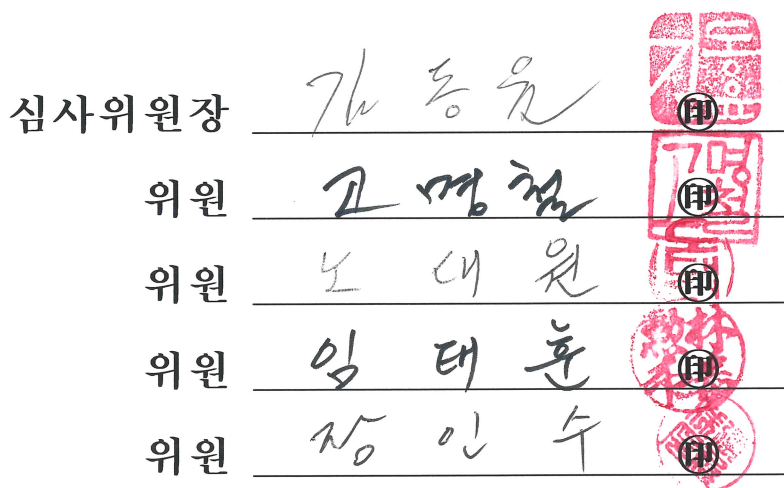 심사위원장 김동윤 印
위원 고명철 印
위원 노대원 印
위원 임태훈 印
위원 장인수 印